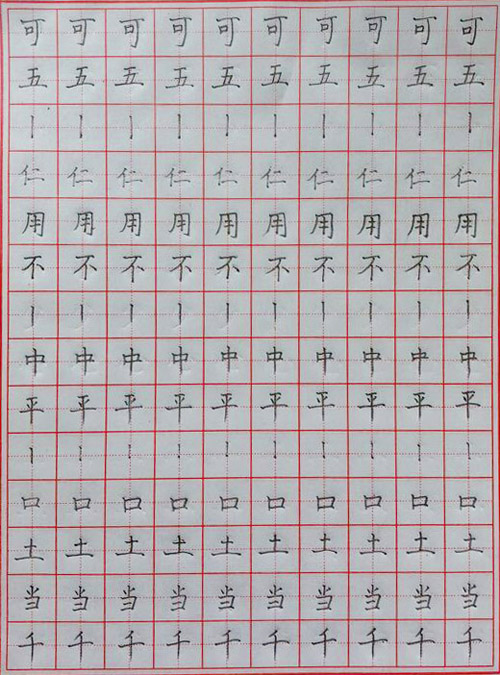 可可可可可可可可可可
五五五五五五五五五五
丨丨丨丨丨丨丨丨丨丨
仁仁仁仁仁仁仁仁仁仁
用用用用用用用用用用
不不不不不不不不不不
丨丨丨丨丨丨丨丨丨丨
中中中中中中中中中中
平平平平平平平平平平
丨丨丨丨丨丨丨丨丨丨
口口口口口口口口口口
土土土土土土土土土土
当当当当当当当当当当
千千千千千千千千千千